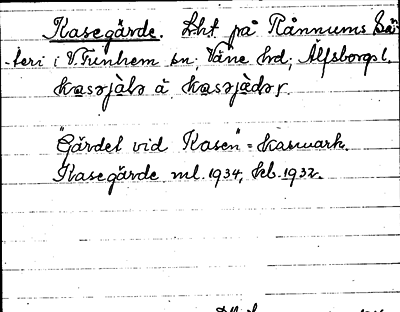 Kasegärde. Lht på Rånnums Sä-
teri i V. Tunhem sn. Väne hd; Älfsborgs l.
kasəjàlə å kasəjàdər.
"Gärdet vid Kasen" = kasmark.
Kasegärde ml. 1934, kb. 1932.